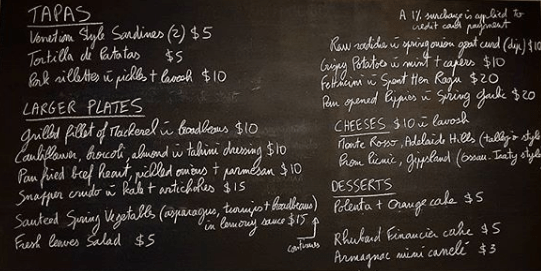 TAPAS
Venetian Style Sardines (2) $5
Tortilla de Patatas $5
Pork rillettes w pickles + lavosh $10
LARGER PLATES
Grilled fillet of Mackerel w broadbeans $10
Cauliflower, brocoli, almond w tahini dressing $10
Pan fried beef heart, pickled onions + parmesan $10
Snapper crudo w Kale + artichokes $15
Sauteed Spring Vegetables (asparagus, turnips + broadbeans)
in lemony sauce $15
Fresh leaves Salad $5
continues
A 1% surcharge is applied to
credit card payment
Raw radishes w spring onion goat curd (dip) $10
Crispy Potatoes w mint + capers $10
Fettucini w Spent Hen Ragu $20
Pan opened Pippies w Spring Garlic $20
CHEESES $10 w lavosh
Monte Rosso, Adelaide Hills (tallegio style
Prom Picnic, Gippsland (ossau-Iraty style
DESSERTS
Polenta + Orange cake $5
Rhubarb Financier cake $5
Armagnac mini canelé $3